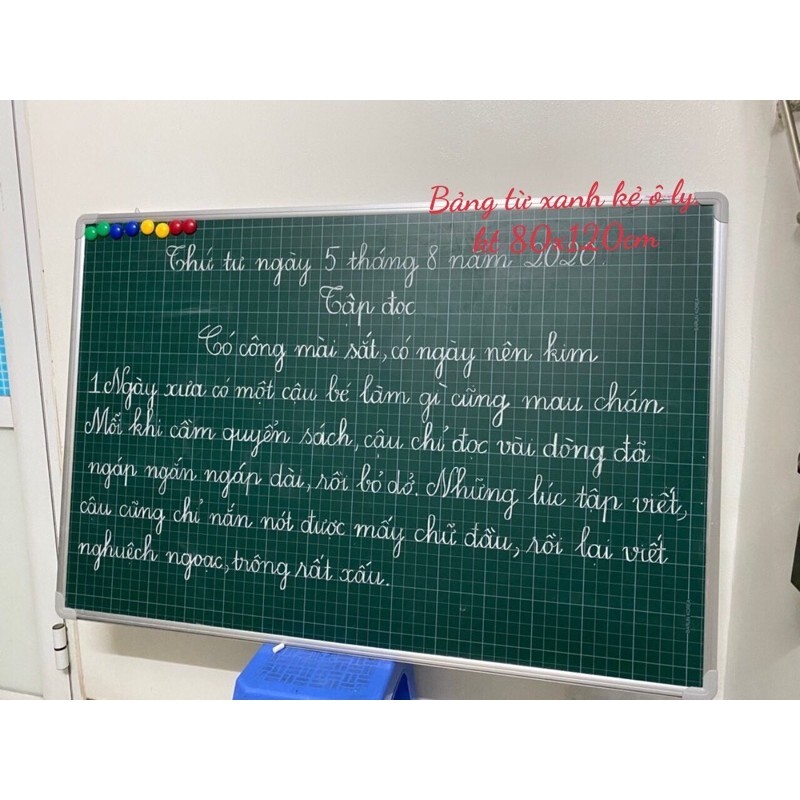 Bảng từ xanh kẻ ô ly.
kt 80x120cm
Thứ tư ngày 5 tháng 8 năm 2020.
Tập đọc
Có công mài sắt, có ngày nên kim
1 Ngày xưa có một cậu bé làm gì cũng mau chán
Mỗi khi cầm quyển sách, cậu chỉ đọc vài dòng đã
ngáp ngắn ngáp dài, rồi bỏ dở. Những lúc tập viết,
cậu cũng chỉ nắn nót được mấy chữ đầu, rồi lại viết
nghuệch ngoạc, trông rất xấu.